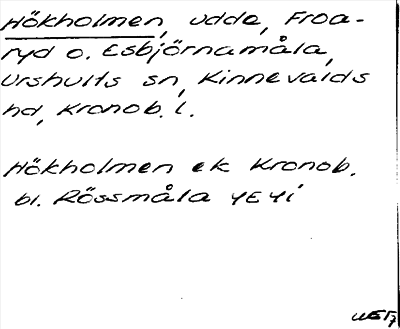 Hökholmen, udde, Froa-
ryd o. Esbjörnamåla,
Urshults sn, Kinnevalds
hd, Kronob. l.
Hökholmen ek Kronob.
bl. Rössmåla 4E4i